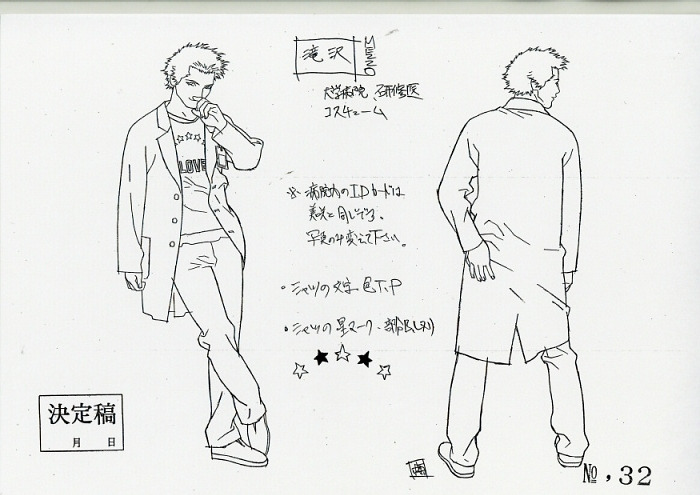 滝沢
MEMO
大学病院 研修医
コスチューム
LOVE
※ 病院内のIDカードは
美咲と同じです、
写真のみ変えて下さい。
・シャツの文字 色T.P
・シャツの星マーク・
決定稿
月 日
No, 32